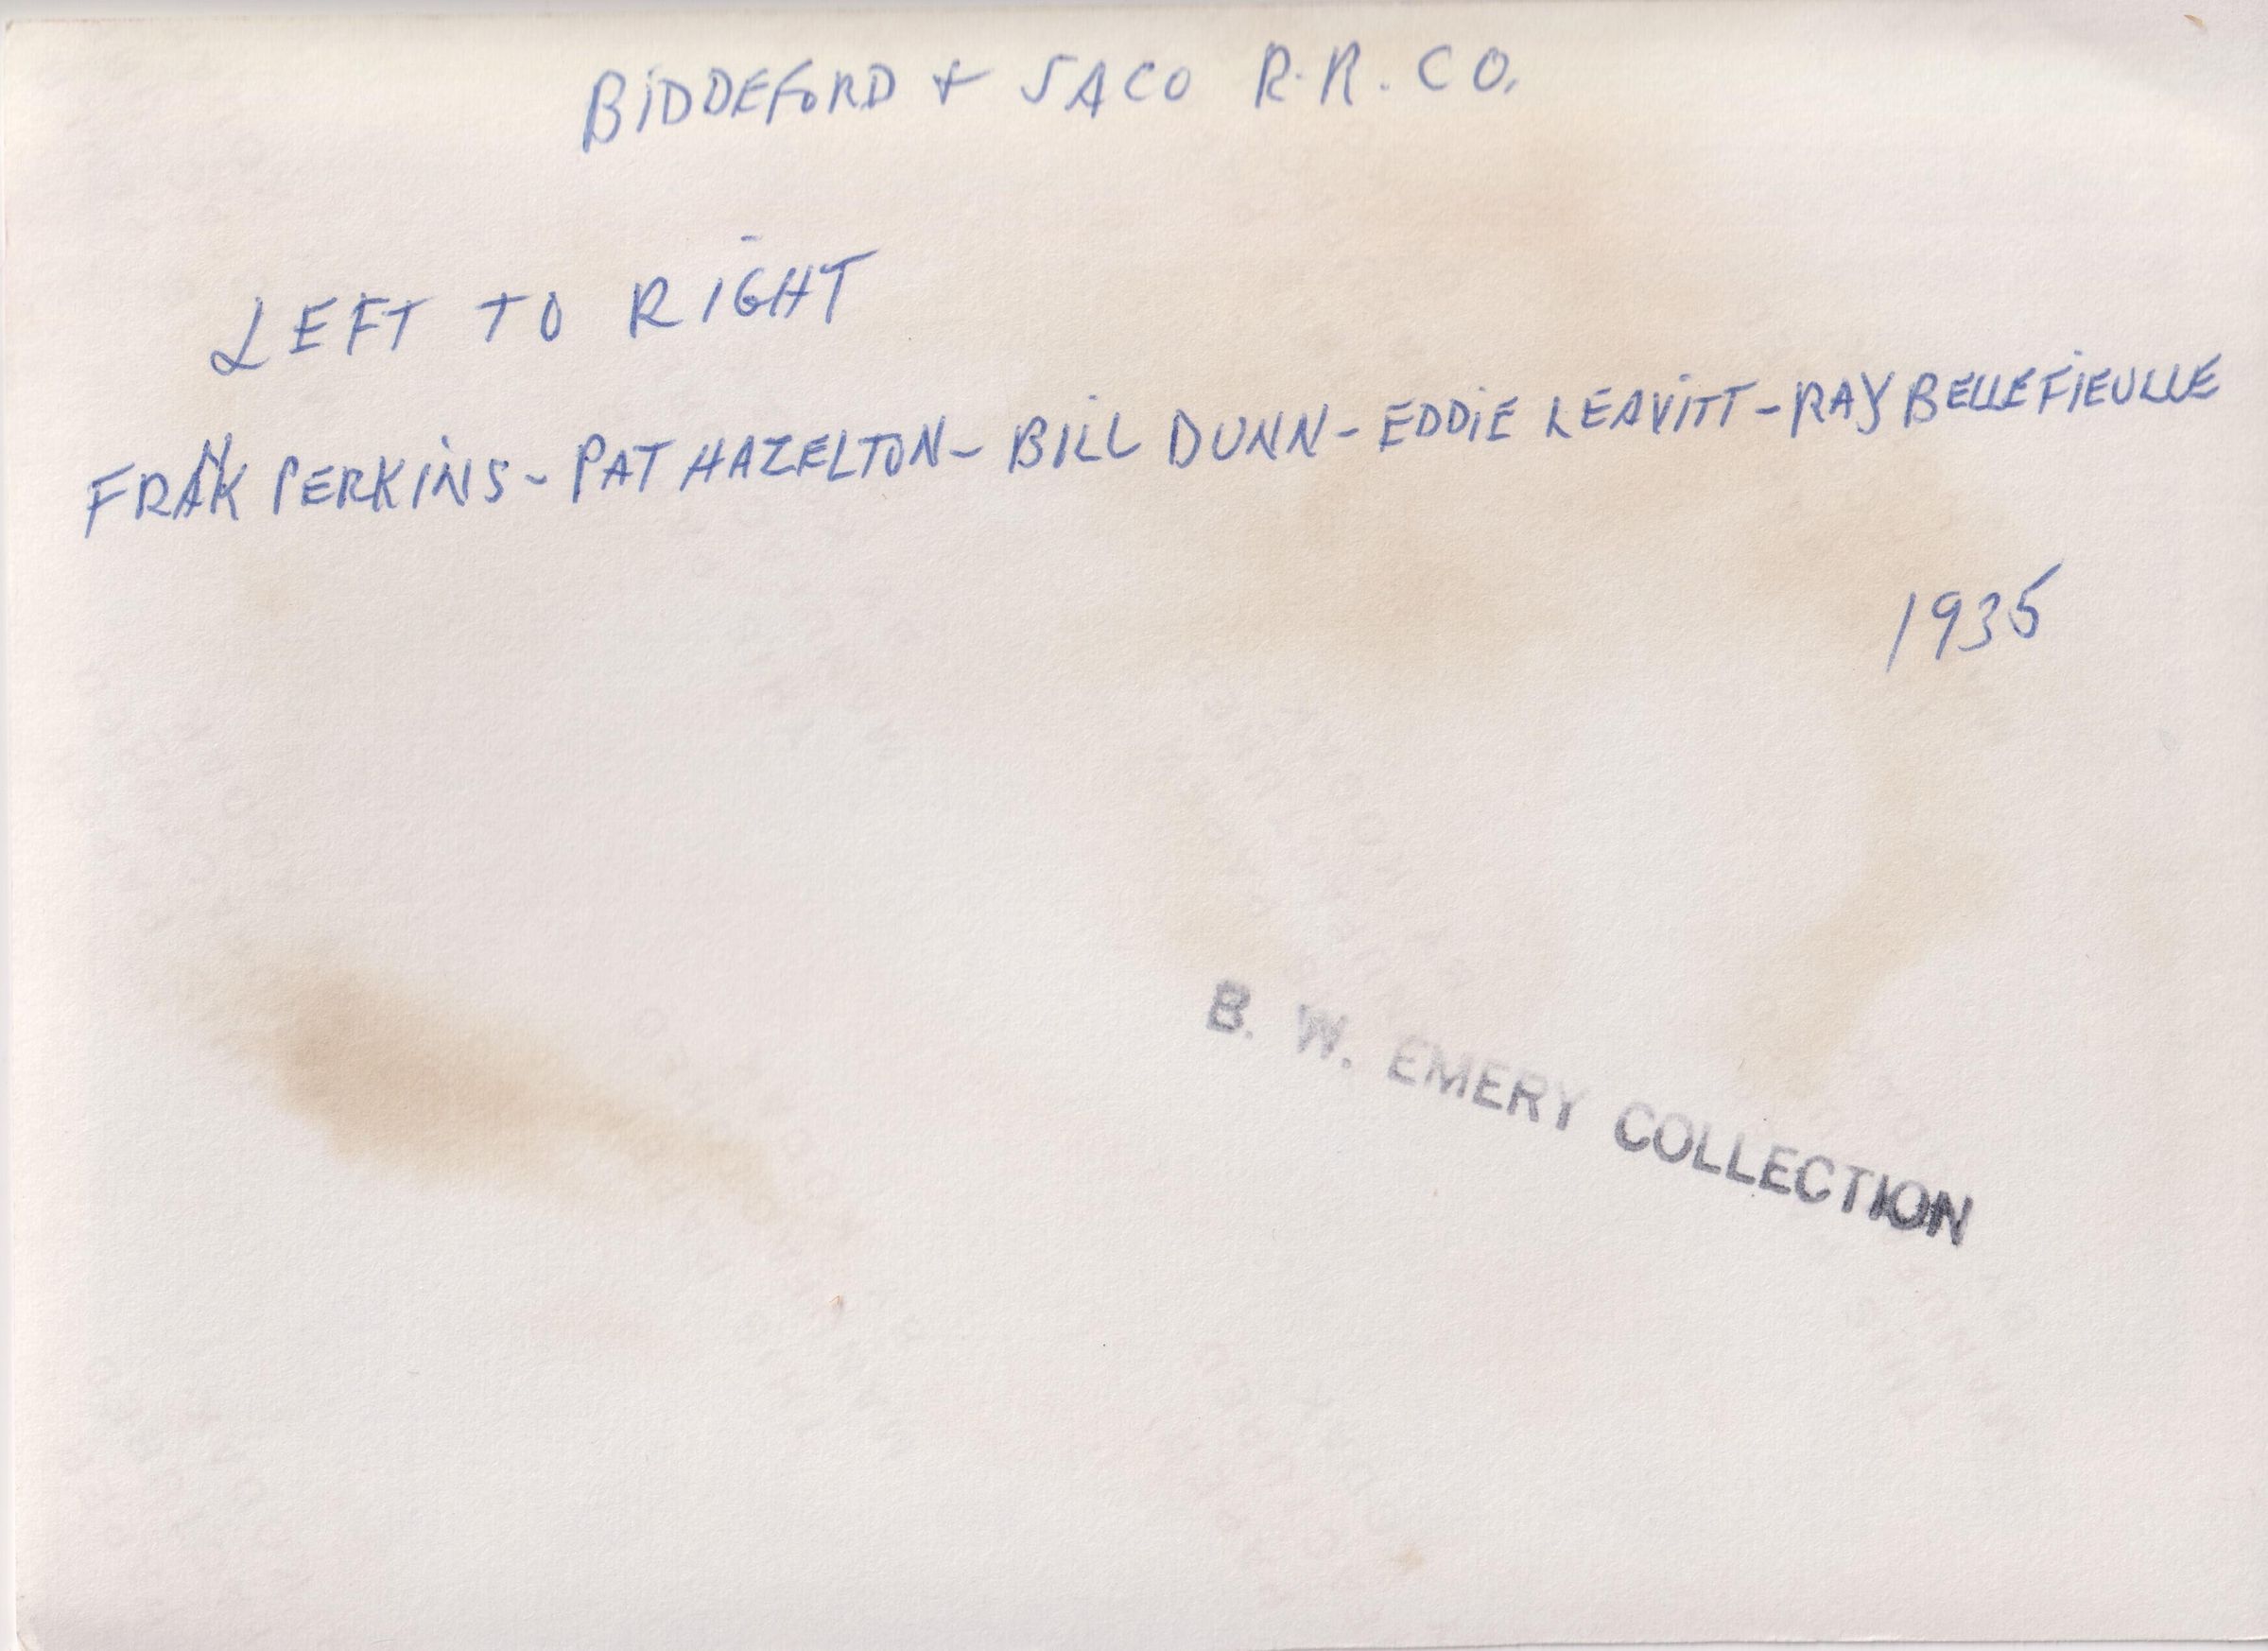 BIDDEFORD + SACO R.R. CO.
LEFT TO RIGHT
FRANK PERKINS - PAT HAZELTON - BILL DUNN - EDDIE LEAVITT - RAY BELLEFIEULLE
1935
B. W. EMERY COLLECTION